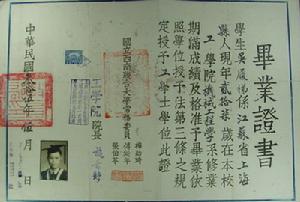 畢業證書
學生吳 係江蘇省上海
縣人現年貳拾 歲在本校
工學院機械工程學系修業
期滿成績及格准予畢業依
照學位授予法第三條之規
定授予工學士學位此證
國立西南聯合大學常務委員
梅貽琦
傅斯年
張伯苓
工學院院長
中華民國 拾伍年 月 日